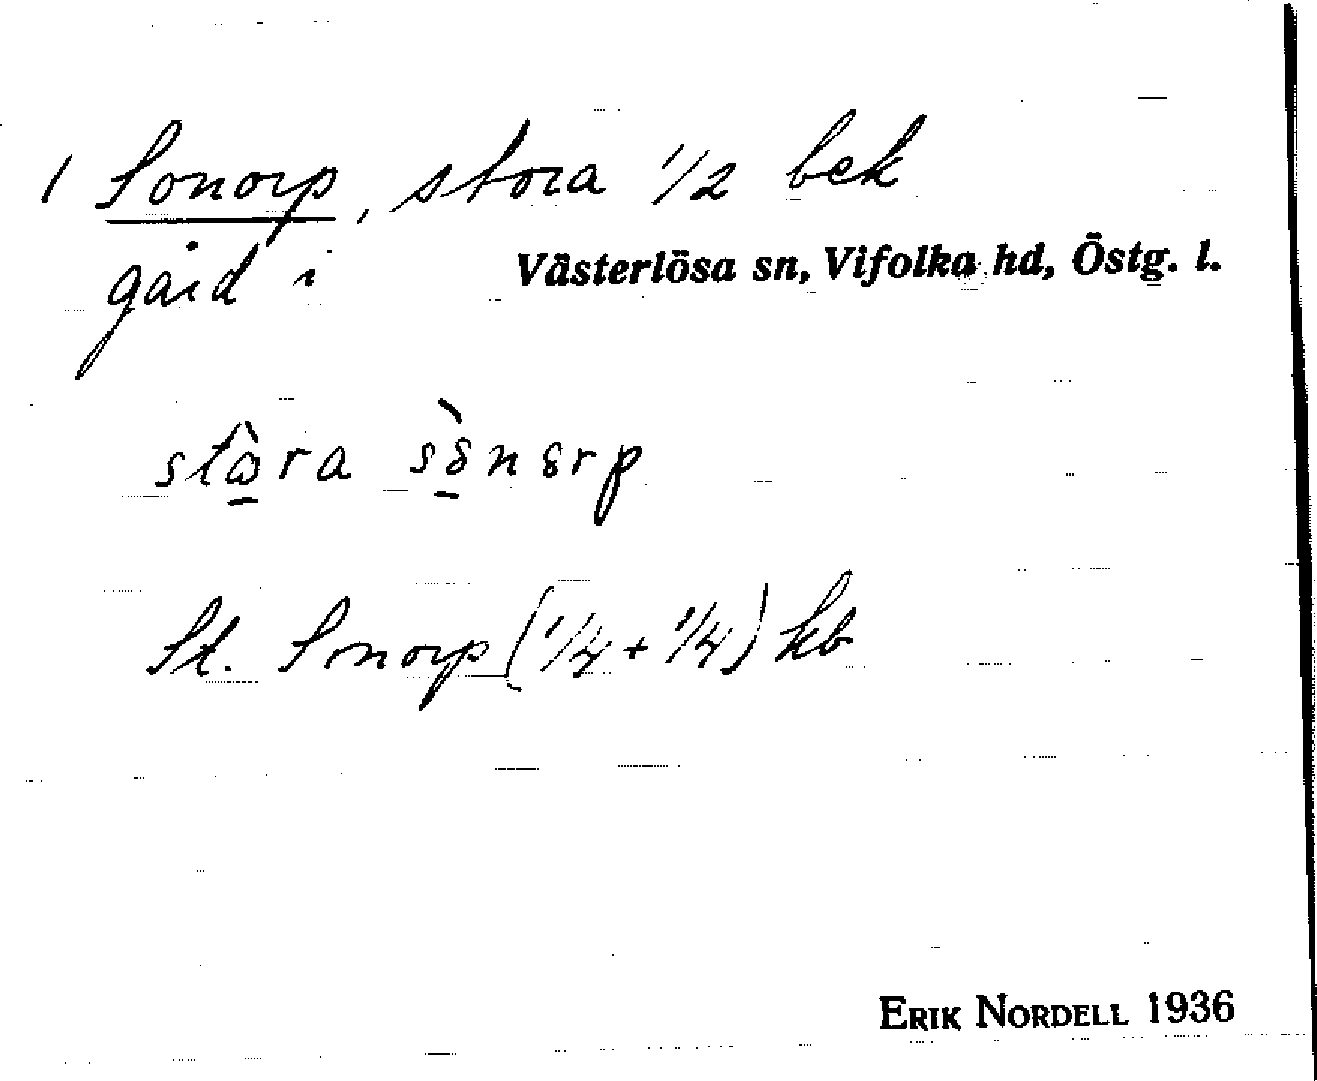 1 Sonorp, stora 1/2 bek
gård i Västerlösa sn, Vifolka hd, Östg. l.
St. Sonorp (1/4 + 1/4) kb
ERIK NORDELL 1936